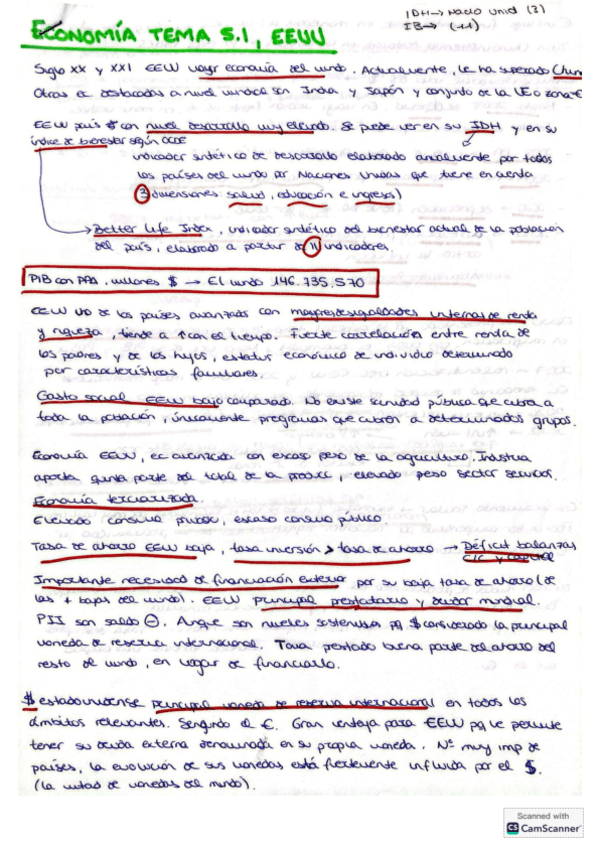 IDH → Nacio Unid (3)
IB → (11)
ECONOMÍA TEMA 5.1, EEUU
Siglo XX y XXI EEUU mayor economía del mundo. Actualmente, le ha superado China
Otras ec destacadas a nivel mundial son India y Japón y conjunto de la UE o zona €
EEUU país $ con nivel desarrollo muy elevado. Se puede ver en su IDH y en su
índice de bienestar según OCDE
indicador sintético de desarrollo elaborado anualmente por todos
los países del mundo por Naciones Unidas que tiene en cuenta
3 dimensiones: salud, educación e ingresos)
→ Better Life Index, indicador sintético del bienestar actual de la población
del país, elaborado a partir de 11 indicadores.
PIB con PPA, millones $ → El mundo 146.735.570
EEUU uno de los países avanzados con mayores desigualdades internas de renta
y riqueza, tiende a ↑ con el tiempo. Fuerte correlación entre renta de
los padres y de los hijos, estatus económico de individuo determinado
por características familiares.
Gasto social EEUU bajo comparado. No existe sanidad pública que cubra a
toda la población, únicamente programas que cubren a determinados grupos.
Economía EEUU, ec avanzada con escaso peso de la agricultura, Industria
aporta quinta parte del total de la producc, elevado peso sector servicios.
Economía terciarizada.
Elevado consumo privado, escaso consumo público.
Tasa de ahorro EEUU baja, tasa inversión > tasa de ahorro → Déficit balanzas
C/C y capital
Importante necesidad de financiación exterior por su baja tasa de ahorro (de
las + bajas del mundo). EEUU principal prestatario y deudor mundial.
PII son saldo ⊖. Aunque son niveles sostenibles pq $ considerado la principal
moneda de reserva internacional. Toma prestado buena parte del ahorro del
resto de mundo, en lugar de financiarlo.
$ estadounidense principal moneda de reserva internacional en todos los
ámbitos relevantes. Seguido el €. Gran ventaja para EEUU pq le permite
tener su deuda externa denominada en su propia moneda. Nº muy imp de
países, la evolución de sus monedas está fuertemente influida por el $.
(la mitad de monedas del mundo).
Scanned with
CS CamScanner